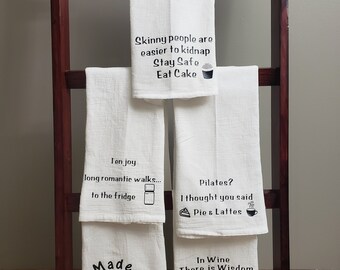 Skinny people are
easier to kidnap
Stay Safe
Eat Cake
I enjoy
long romantic walks...
to the fridge
Pilates?
I thought you said
Pie & Lattes
Made
In Wine
There is Wisdom